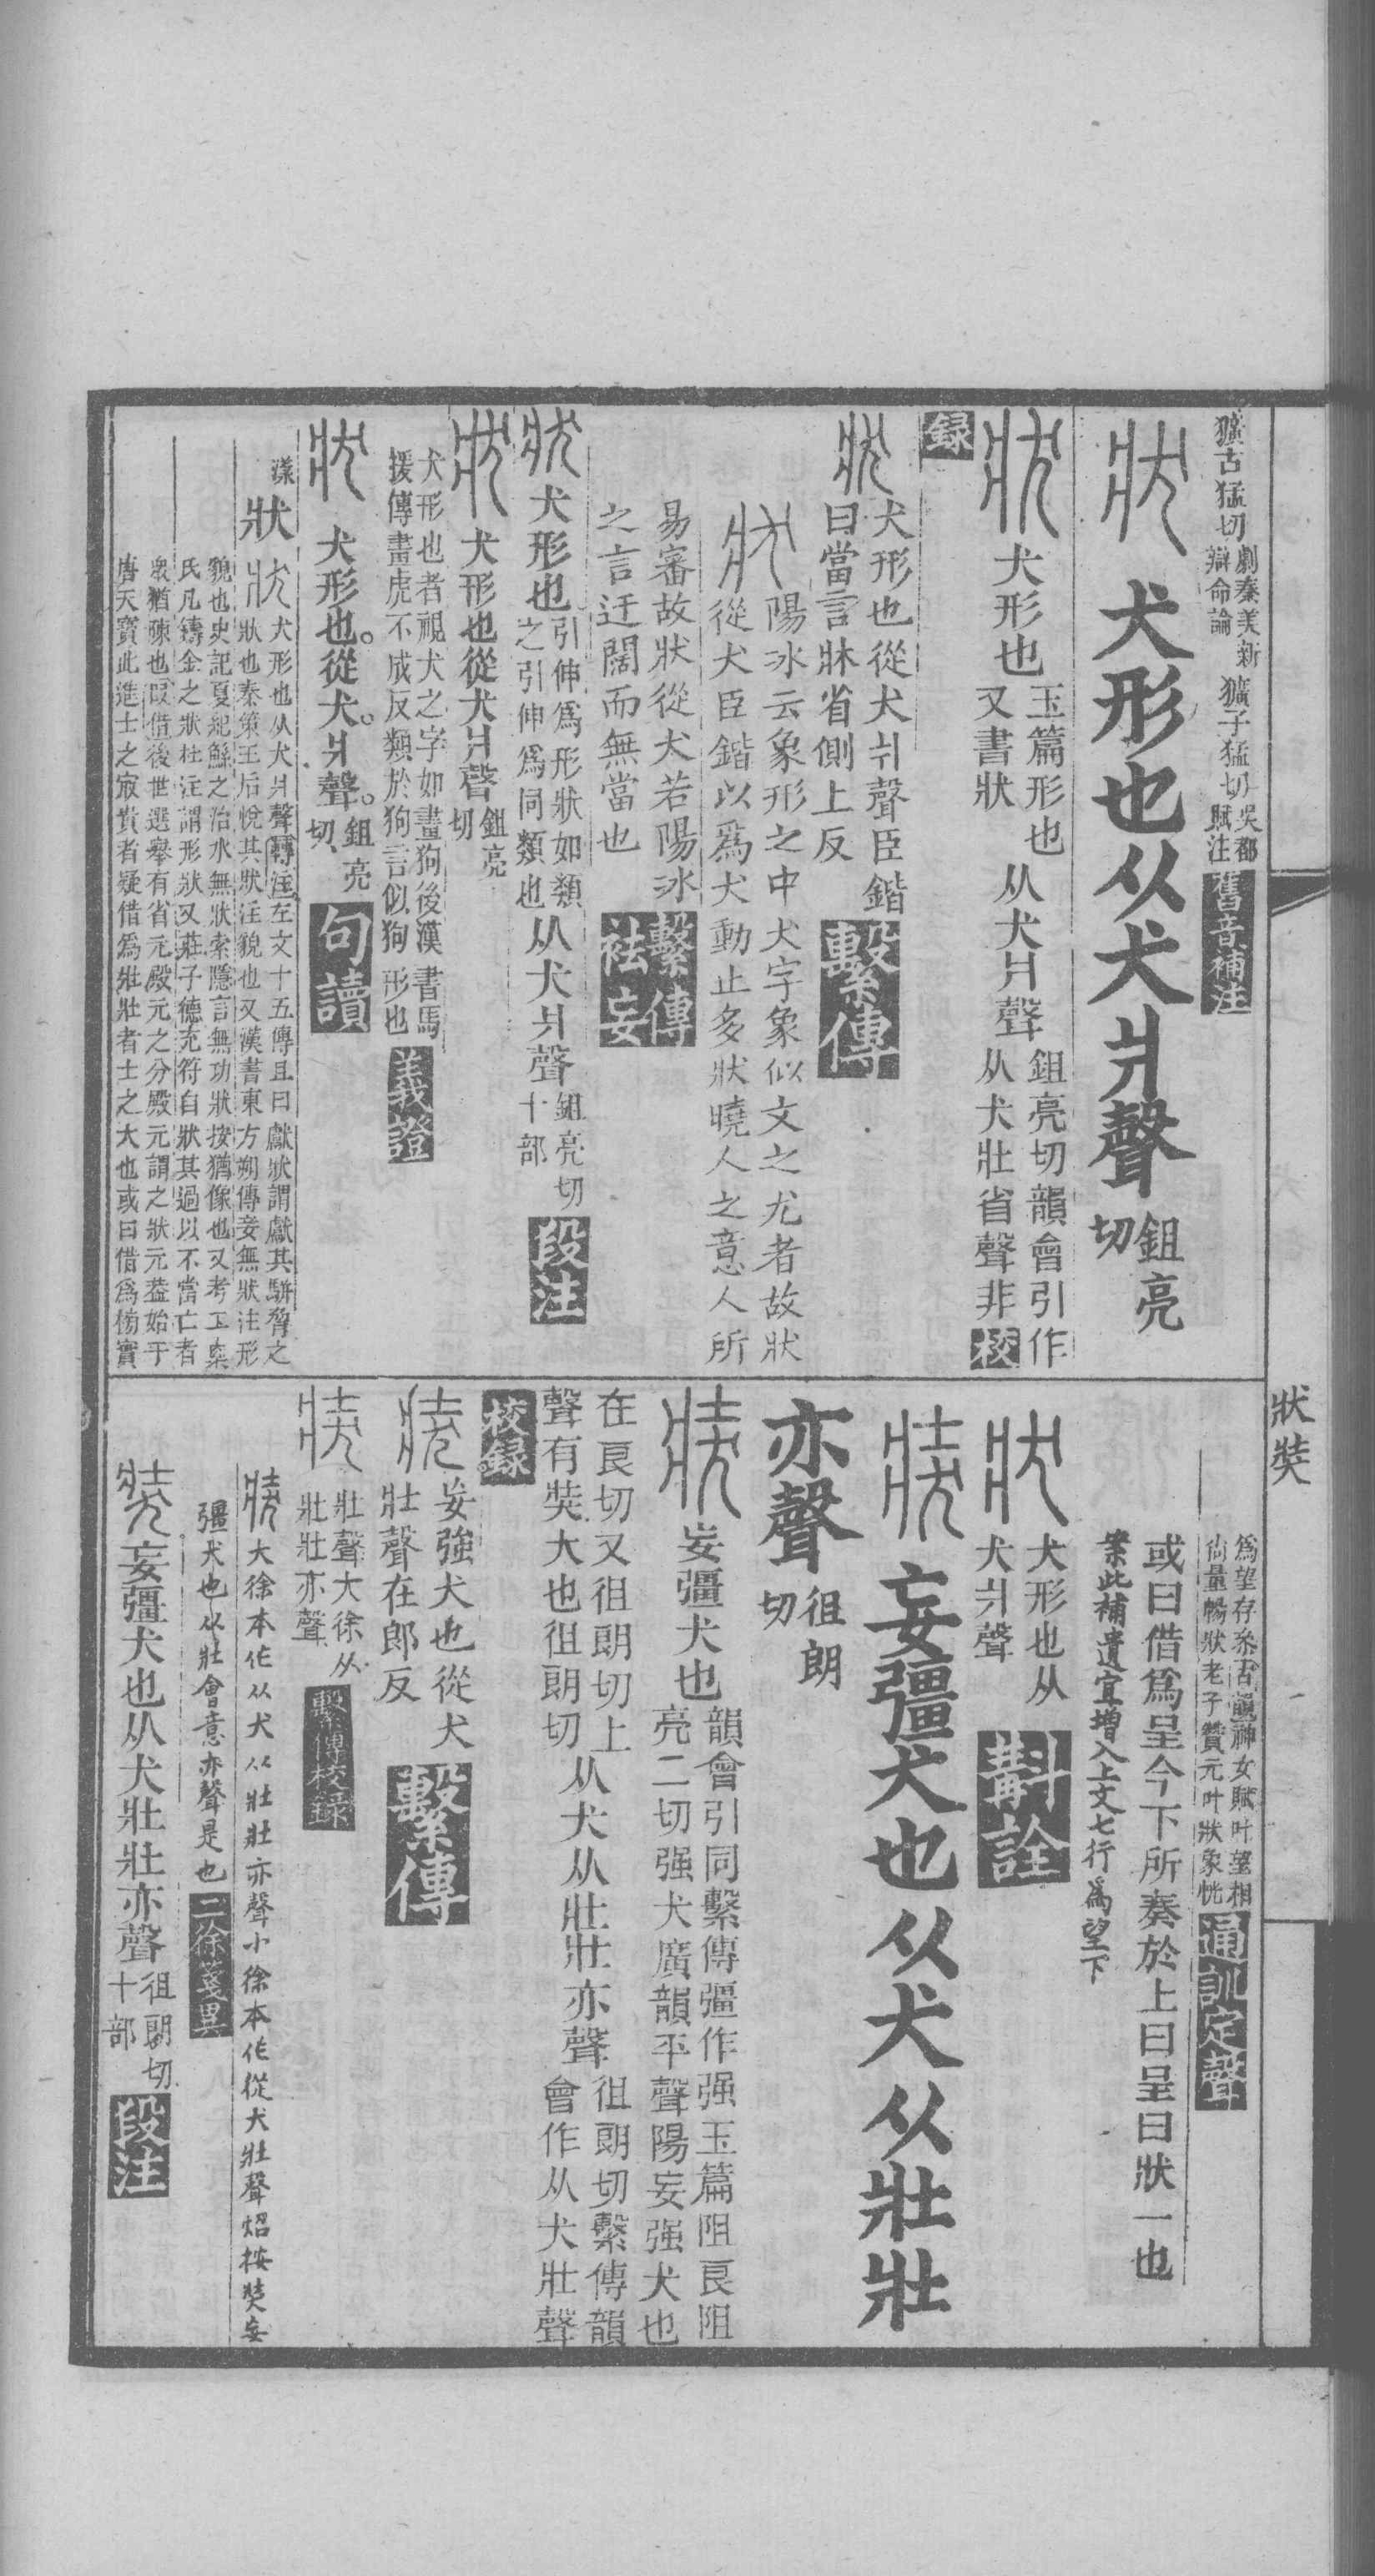 獷古猛切劇秦美新辯命論 獷子猛切吳都賦注 舊音補注
狀 犬形也从犬爿聲鉏亮切
狀 犬形也玉篇形也又書狀从犬爿聲鉏亮切韻會引作从犬壯省聲非校
録
狀 犬形也從犬爿聲臣鍇曰當言牀省側上反 繫傳
狀 陽冰云象形之中犬字象似文之尤者故狀從犬臣鍇以爲犬動止多狀曉人之意人所
易審故狀從犬若陽冰之言迂闊而無當也 繫傳袪妄
狀 犬形也引伸爲形狀如類之引伸爲同類也从犬爿聲鉏亮切十部 段注
狀 犬形也從犬爿聲鉏亮切
犬形也者視犬之字如畫狗後漢書馬援傳畫虎不成反類於狗言似狗形也 義證
狀 犬形也。從犬。爿聲。鉏亮切 句讀
漾 狀
狀 犬形也从犬爿聲轉注左文十五傳且曰獻狀謂獻其駢脅之
狀也秦策王后悅其狀注貌也又漢書東方朔傳妾無狀注形
貌也史記夏紀鯀之治水無狀索隱言無功狀按猶像也又考工㮚
氏凡鑄金之狀杜注謂形狀又莊子德充符自狀其過以不當亡者
衆猶陳也假借後世選舉有省元殿元之分殿元謂之狀元葢始于
唐天寶此進士之㝡貴者疑借爲壯壯者士之大也或曰借爲榜實
狀奘
爲望存叅古韻神女賦叶望相
尙量暢狀老子贊元叶狀象恍 通訓定聲
或曰借爲呈今下所奏於上曰呈曰狀一也
案此補遺宜增入上文七行爲望下
狀 犬形也从犬爿聲 斠詮
奘 妄彊犬也从犬从壯壯
亦聲徂朗切
奘 妄彊犬也韻會引同繫傳彊作强玉篇阻良阻亮二切强犬廣韻平聲陽妄强犬也
在良切又徂朗切上聲有奘大也徂朗切从犬从壯壯亦聲徂朗切繫傳韻會作从犬壯聲
校録
奘 妄強犬也從犬壯聲在郎反 繫傳
奘 壯聲大徐从壯壯亦聲 繫傳校録
奘 大徐本作从犬从壯壯亦聲小徐本作從犬壯聲炤按奘妄
彊犬也从壯會意亦聲是也 二徐箋異
奘 妄彊犬也从犬壯壯亦聲徂朗切十部 段注